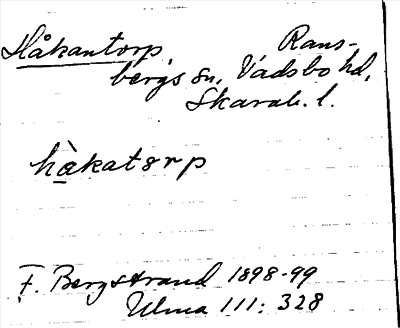 Håkantorp, Rans-
bergs sn, Vadsbo hd,
Skarab. l.
hàkatørp
F. Bergstrand 1898-99
Ulma 111: 328